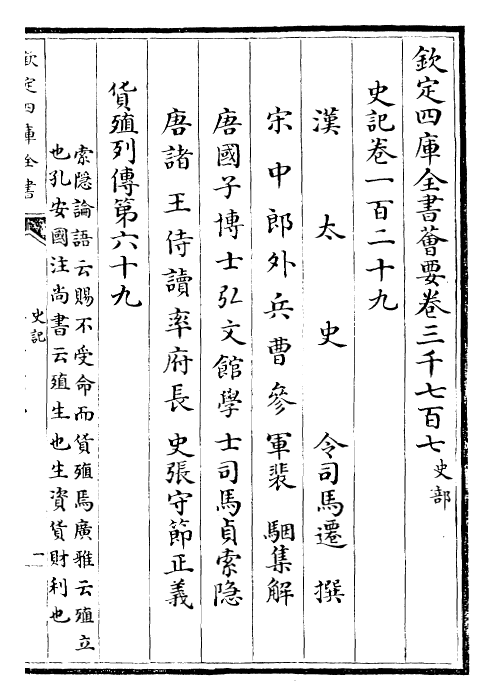 欽定四庫全書薈要卷三千七百七 史部
史記卷一百二十九
漢太史令司馬遷撰
宋中郎外兵曹參軍裴駰集解
唐國子博士弘文館學士司馬貞索隐
唐諸王侍讀率府長史張守節正義
貨殖列傳第六十九
索隐論語云賜不受命而貨殖焉廣雅云殖立
也孔安國注尚書云殖生也生資貨財利也
欽定四庫全書
史記
一